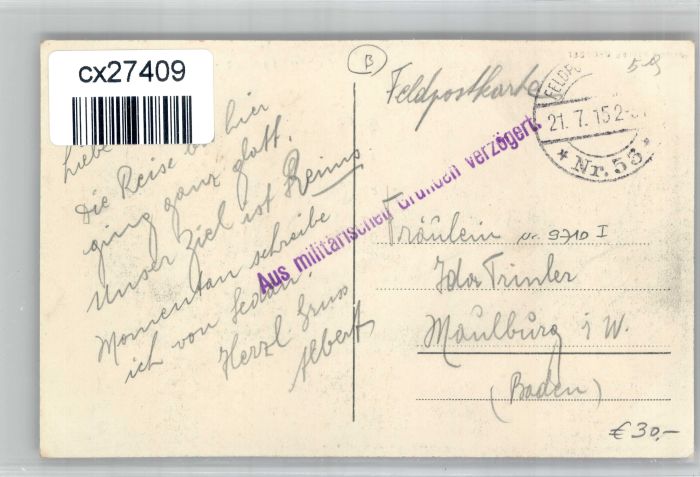 cx27409
B
Feldpostkarte
5-9
21. 7. 15 2-
* Nr. 53 *
Aus militärischen Gründen verzögert.
Liebe
Die Reise bis hier
ging ganz glatt.
Unser Ziel ist Reims
Momentan schreibe
ich von Sedan!
Herzl. Gruss
Albert
Fräulein nr. 9710 I
Ida Trimler
Maulburg i W.
(Baden)
€ 30,-